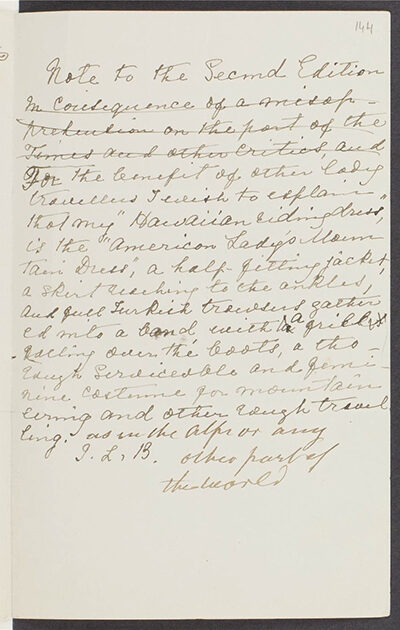 144
Note to the Second Edition
In consequence of a misap-
prehension on the part of the
Times and other critics and
For the benefit of other lady
travellers I wish to explain
that my "Hawaiian riding dress,"
is the "American Lady's Moun
tain Dress", a half-fitting jacket,
a skirt reaching to the ankles,
and full Turkish trousers gather
ed into a band with a frill
falling over the boots, a tho
rough serviceable and femi-
nine costume for mountain
eering and other rough travel
ling. as in the Alps or any
I. L. B. other part of
the world